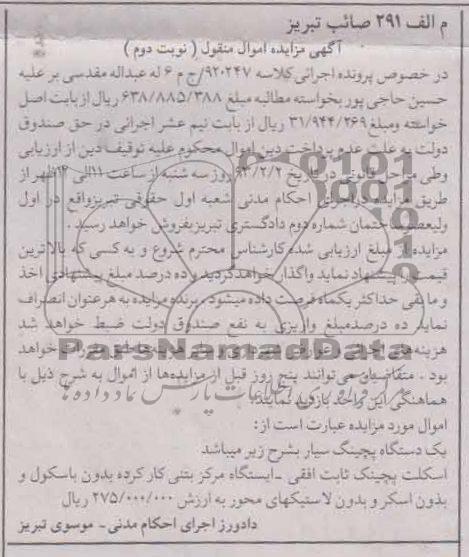 م الف ۲۹۱ صائب تبریز
آگهی مزایده اموال منقول ( نوبت دوم )
در خصوص پرونده اجرائی کلاسه ۹۲۰۲۴۷/ج م ۶ له عبداله مقدسی بر علیه
حسین حاجی پور بخواسته مطالبه مبلغ ۶۳۸/۸۸۵/۳۸۸ ریال از بابت اصل
خواسته ومبلغ ۳۱/۹۴۴/۲۶۹ ریال از بابت نیم عشر اجرائی در حق صندوق
دولت به علت عدم پرداخت دین اموال محکوم علیه توقیف دین از ارزیابی
وطی مراحل قانونی در تاریخ ۹۳/۲/۲ روز سه شنبه از ساعت ۱۱الی ۱۲ظهر از
طریق مزایده در اجرای احکام مدنی شعبه اول حقوقی تبریز واقع در اول
ولیعصر ساختمان شماره دوم دادگستری تبریز بفروش خواهد رسید .
مزایده از مبلغ ارزیابی شده کارشناس محترم شروع و به کسی که بالاترین
قیمت را پیشنهاد نماید واگذار خواهد گردید و ده درصد مبلغ پیشنهادی اخذ
و ما بقی حداکثر یکماه فرصت داده میشود . برنده مزایده به هر عنوان انصراف
نماید ده درصد مبلغ واریزی به نفع صندوق دولت ضبط خواهد شد
هزینه‌های اجرائی خواهد
بود . متقاضیان می توانند پنج روز قبل از مزایده‌ها از اموال به شرح ذیل با
هماهنگی این واحد بازدید نمایند.
اموال مورد مزایده عبارت است از:
یک دستگاه پچینگ سیار بشرح زیر میباشد
اسکلت پچینک ثابت افقی -ایستگاه مرکز بتنی کار کرده بدون باسکول و
بدون اسکر و بدون لاستیکهای محور به ارزش ۲۷۵/۰۰۰/۰۰۰ ریال
دادورز اجرای احکام مدنی- موسوی تبریز
ParsNamadData
پارس نماد داده ها